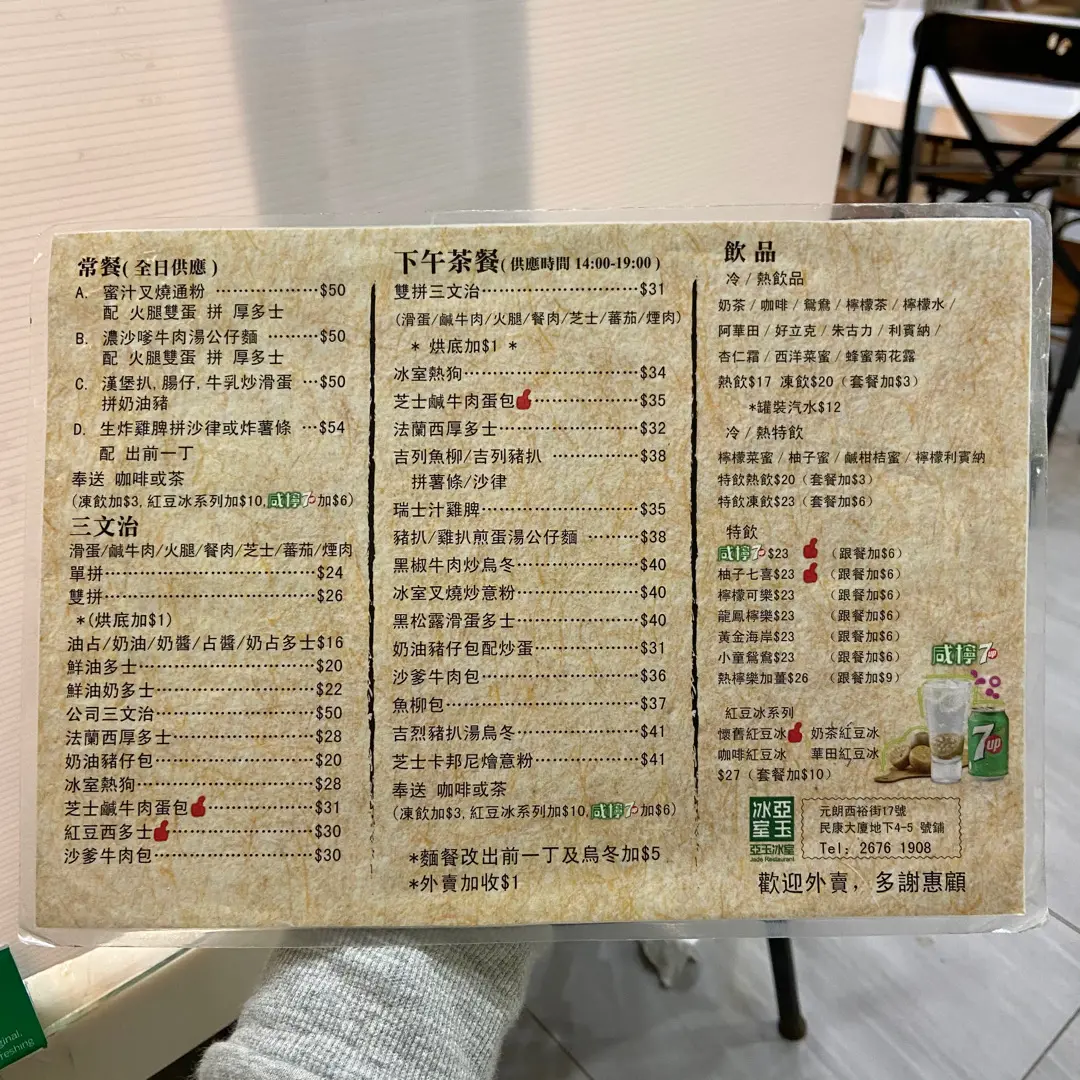 常餐(全日供應)
A. 蜜汁叉燒通粉 ⋯⋯⋯⋯⋯⋯$50
配 火腿雙蛋 拼 厚多士
B. 濃沙嗲牛肉湯公仔麵 ⋯⋯⋯⋯$50
配 火腿雙蛋 拼 厚多士
C. 漢堡扒, 腸仔, 牛乳炒滑蛋 ⋯$50
拼奶油豬
D. 生炸雞髀拼沙律或炸薯條 ⋯$54
配 出前一丁
奉送 咖啡或茶
(凍飲加$3, 紅豆冰系列加$10, 咸檸7加$6)
三文治
滑蛋/鹹牛肉/火腿/餐肉/芝士/蕃茄/煙肉
單拼⋯⋯⋯⋯⋯⋯$24
雙拼⋯⋯⋯⋯⋯⋯$26
*(烘底加$1)
油占/奶油/奶醬/占醬/奶占多士$16
鮮油多士⋯⋯⋯⋯⋯⋯$20
鮮油奶多士⋯⋯⋯⋯⋯⋯$22
公司三文治⋯⋯⋯⋯⋯⋯$50
法蘭西厚多士⋯⋯⋯⋯⋯⋯$28
奶油豬仔包⋯⋯⋯⋯⋯⋯$20
冰室熱狗⋯⋯⋯⋯⋯⋯$28
芝士鹹牛肉蛋包⋯⋯⋯⋯⋯⋯$31
紅豆西多士⋯⋯⋯⋯⋯⋯$30
沙爹牛肉包⋯⋯⋯⋯⋯⋯$30
下午茶餐(供應時間 14:00-19:00)
雙拼三文治⋯⋯⋯⋯⋯⋯$31
(滑蛋/鹹牛肉/火腿/餐肉/芝士/蕃茄/煙肉)
* 烘底加$1 *
冰室熱狗⋯⋯⋯⋯⋯⋯$34
芝士鹹牛肉蛋包⋯⋯⋯⋯⋯⋯$35
法蘭西厚多士⋯⋯⋯⋯⋯⋯$32
吉列魚柳/吉列豬扒 ⋯⋯⋯⋯$38
拼薯條/沙律
瑞士汁雞髀⋯⋯⋯⋯⋯⋯$35
豬扒/雞扒煎蛋湯公仔麵 ⋯⋯⋯$38
黑椒牛肉炒烏冬⋯⋯⋯⋯⋯⋯$40
冰室叉燒炒意粉⋯⋯⋯⋯⋯⋯$40
黑松露滑蛋多士⋯⋯⋯⋯⋯⋯$40
奶油豬仔包配炒蛋⋯⋯⋯⋯⋯⋯$31
沙爹牛肉包⋯⋯⋯⋯⋯⋯$36
魚柳包⋯⋯⋯⋯⋯⋯$37
吉烈豬扒湯烏冬⋯⋯⋯⋯⋯⋯$41
芝士卡邦尼燴意粉⋯⋯⋯⋯⋯⋯$41
奉送 咖啡或茶
(凍飲加$3, 紅豆冰系列加$10, 咸檸7加$6)
*麵餐改出前一丁及烏冬加$5
*外賣加收$1
飲品
冷/熱飲品
奶茶/咖啡/鴛鴦/檸檬茶/檸檬水/
阿華田/好立克/朱古力/利賓納/
杏仁霜/西洋菜蜜/蜂蜜菊花露
熱飲$17 凍飲$20 (套餐加$3)
*罐裝汽水$12
冷/熱特飲
檸檬菜蜜/柚子蜜/鹹柑桔蜜/檸檬利賓納
特飲熱飲$20 (套餐加$3)
特飲凍飲$23 (套餐加$6)
特飲
咸檸7 $23 (跟餐加$6)
柚子七喜$23 (跟餐加$6)
檸檬可樂$23 (跟餐加$6)
龍鳳檸樂$23 (跟餐加$6)
黃金海岸$23 (跟餐加$6)
小童鴛鴦$23 (跟餐加$6)
熱檸樂加薑$26 (跟餐加$9)
咸檸7
紅豆冰系列
懷舊紅豆冰 奶茶紅豆冰
咖啡紅豆冰 華田紅豆冰
$27 (套餐加$10)
7up
亞玉冰室
亞玉冰室
Jade Restaurant
元朗西裕街17號
民康大廈地下4-5 號鋪
Tel: 2676 1908
歡迎外賣, 多謝惠顧